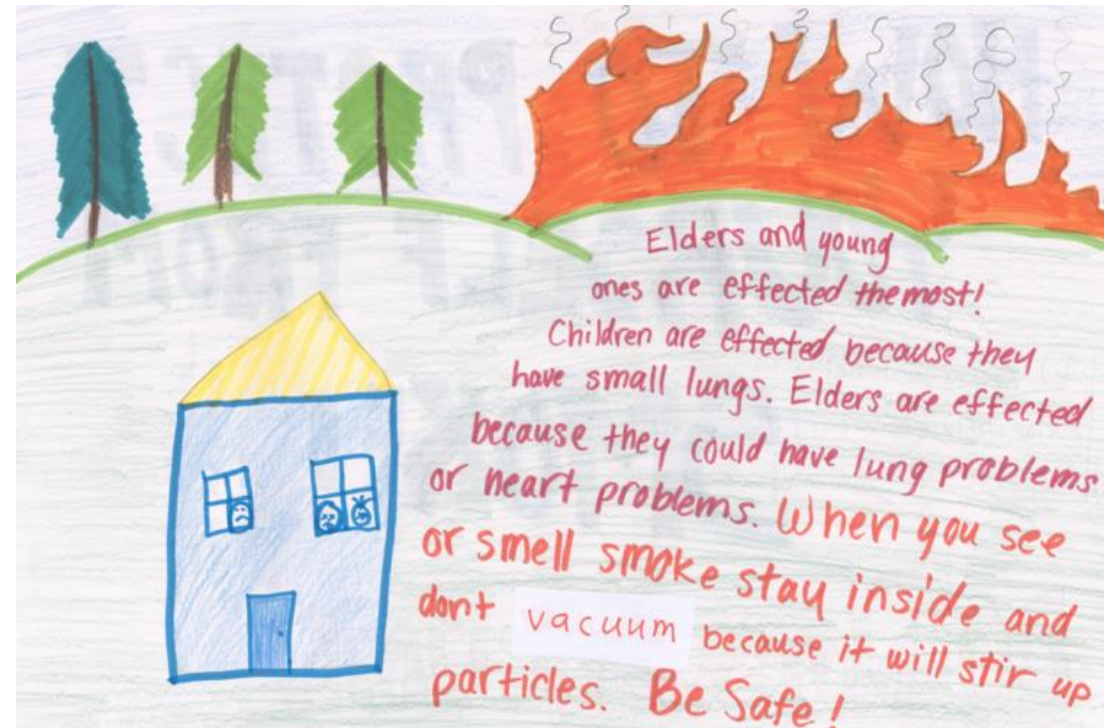 Elders and young
ones are effected the most!
Children are effected because they
have small lungs. Elders are effected
because they could have lung problems
or heart problems. When you see
or smell smoke stay inside and
dont vacuum because it will stir up
particles. Be Safe!